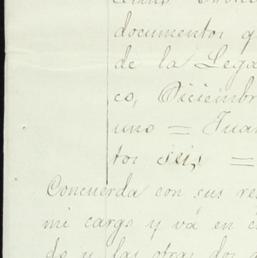 documentos q
de la Lega
co, Diciembr
uno = Juan
tos seis =
Concuerda con sus re
mi cargo y vá en c
do y las otras dos